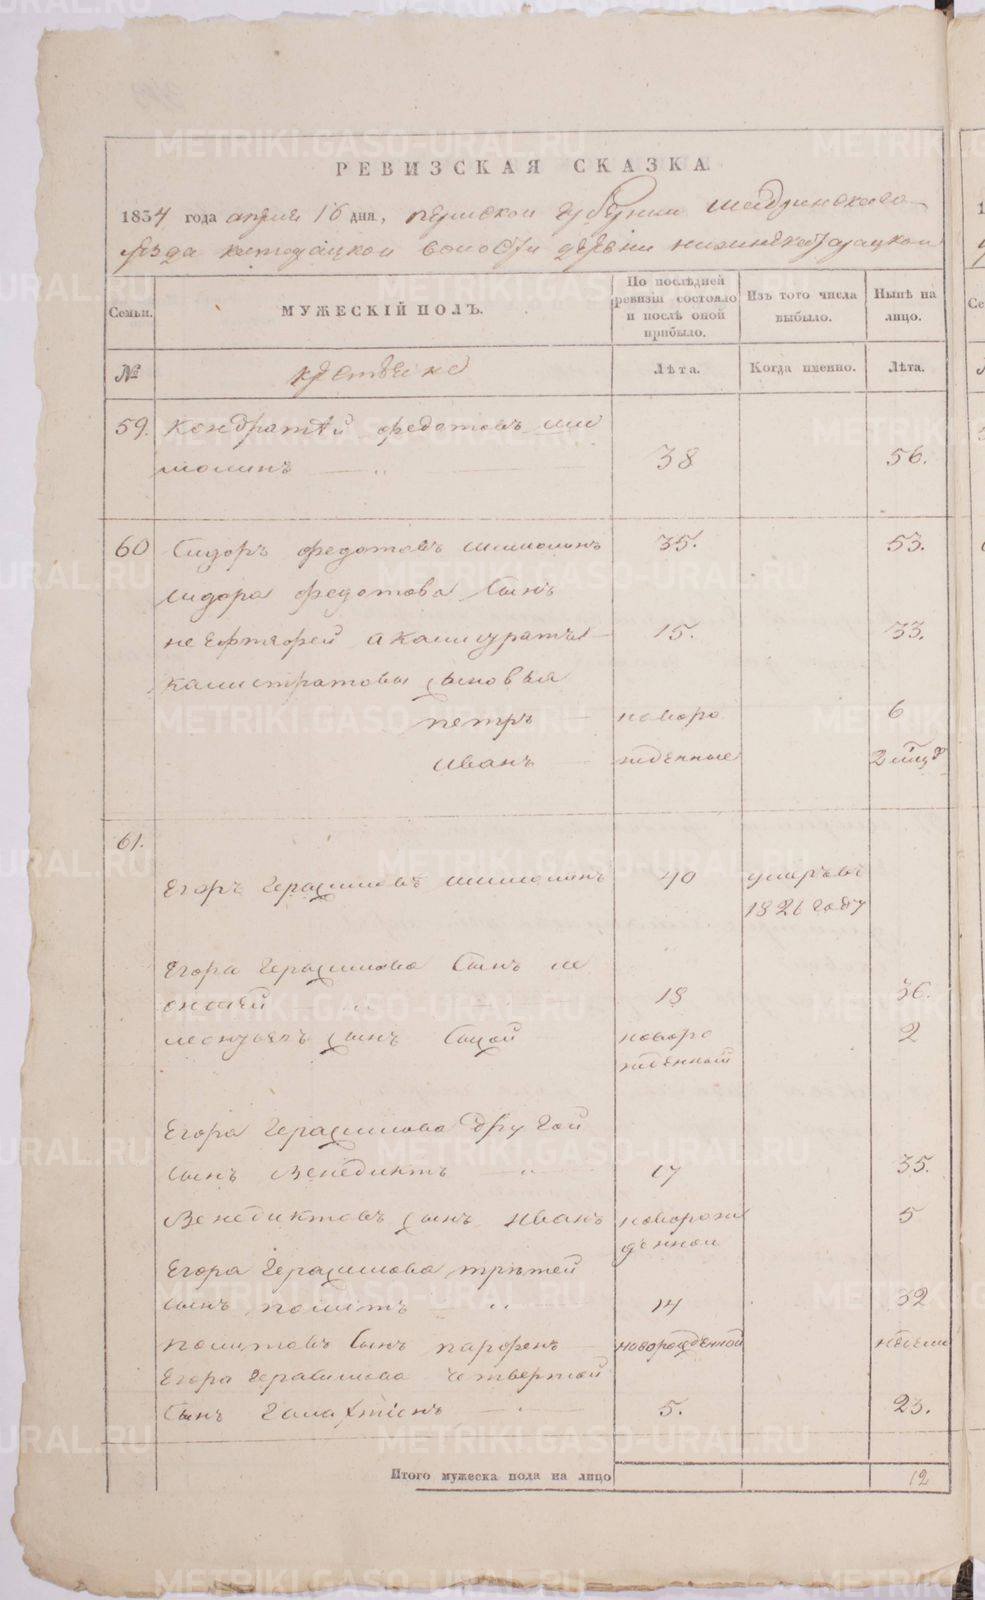 РЕВИЗСКАЯ СКАЗКА.
1834 года апреля 16 дня, пермской губернии шадринскаго
уезда катадацкой волости деревни
Семьи.
МУЖЕСКІЙ ПОЛЪ.
По послѣдней ревизіи состояло и послѣ оной прибыло.
Изъ того числа выбыло.
Нынѣ на лицо.
№
крестьяне
Лѣта.
Когда именно.
Лѣта.
59. Кондратей федотовъ ши
молинъ 38 56.
60 Сидоръ федотовъ шимолинъ 35. 53.
сидора федотова сынъ
15. 33.
калистратовы сыновья
петръ новоро 6
иванъ жденные 2
61.
Егоръ Герасимовъ шимолинъ 40 умръ въ
1826 году
Егора Герасимова сынъ ле
онтей 18 36.
сынъ новоро 2
жденной
Егора Герасимова другой
сынъ Венедиктъ 17 35.
Венедиктовъ сынъ иванъ новорож 5
денной
Егора Герасимова третей
сынъ политъ 14 32
политовъ сынъ парфенъ новорожденной
Егора Герасимова четвертой
Сынъ Галахтіонъ 5. 23.
Итого мужеска пола на лицо 12
METRIKI.GASO-URAL.RU